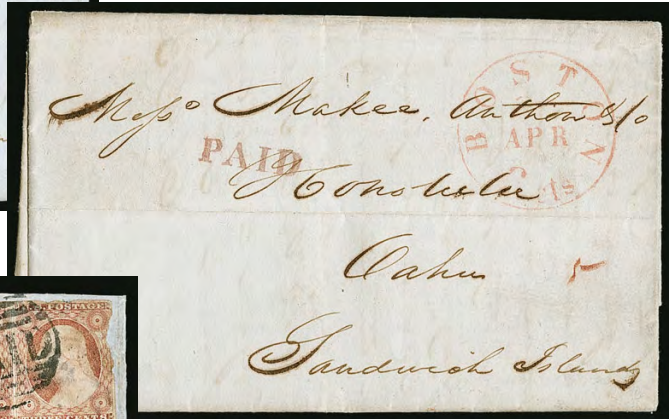 Mess^s Makee, Anthon & Co
PAID
BOSTON
APR
6 cts
Honolulu
Oahu
5
Sandwich Islands
POSTAGE